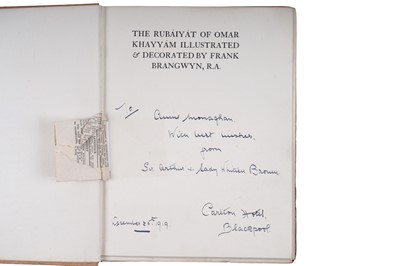 THE RUBÁIYÁT OF OMAR
KHAYYÁM ILLUSTRATED
& DECORATED BY FRANK
BRANGWYN, R.A.
To
Annie Monaghan
With best wishes,
from
Sir Arthur & Lady Whitten Brown.
Carlton Hotel,
Blackpool.
December 28th 1919